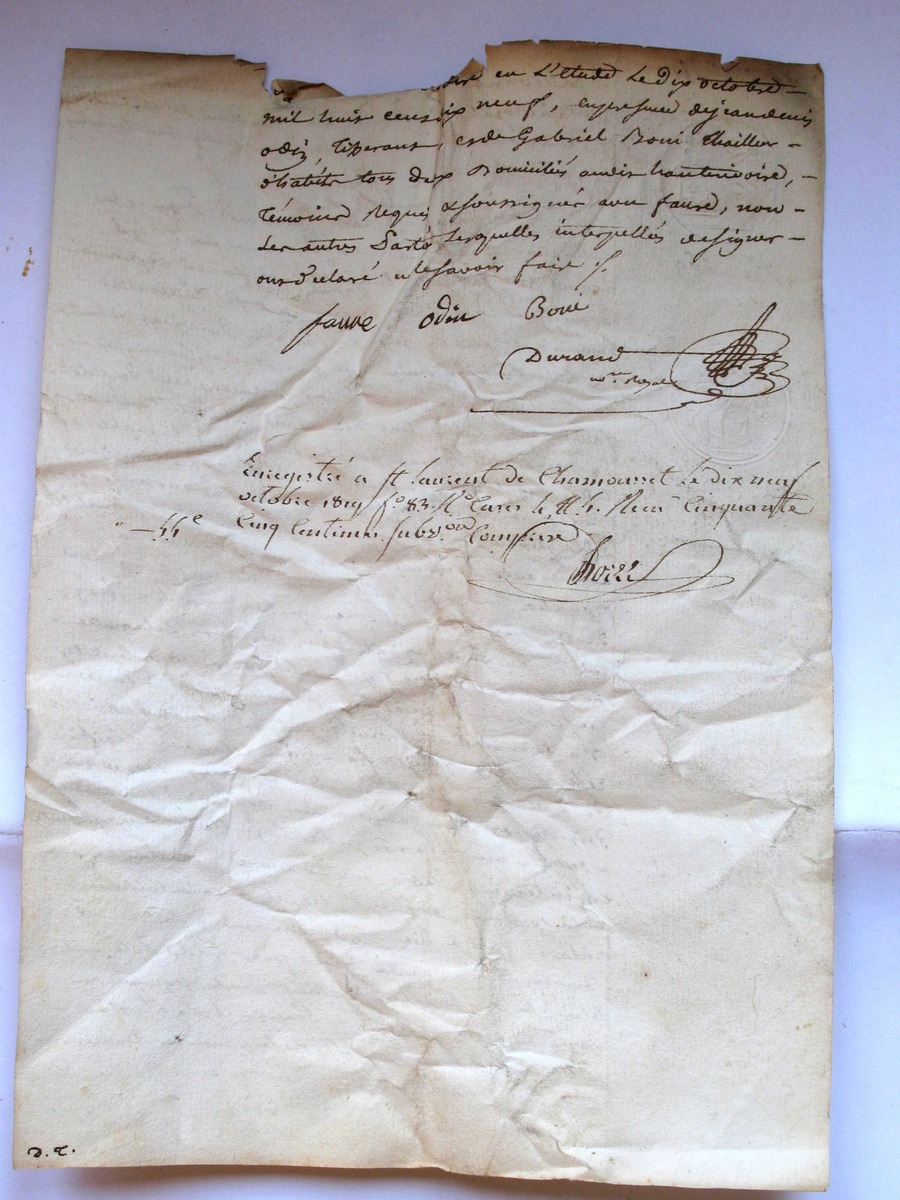 en L'etude Le dix octobre
mil huit cent dix neuf, en presence de jean denis
odin, Tisserant, et de Gabriel Boni Tailleur
d'habits tous deux Domiciliés audit hauterivoire,
Témoins Requis & soussignés avec faure, non
Les autres Parties Lesquelles interpellés de signer
ont declaré ne le savoir faire
faure odin Boni
Durand
Enregistré a St Laurent de Chamousset Le dix neuf
octobre 1819 fo. 83. Vo. Cases Recu Cinquante
Cinq Centimes subv.on Comprise
D. T.